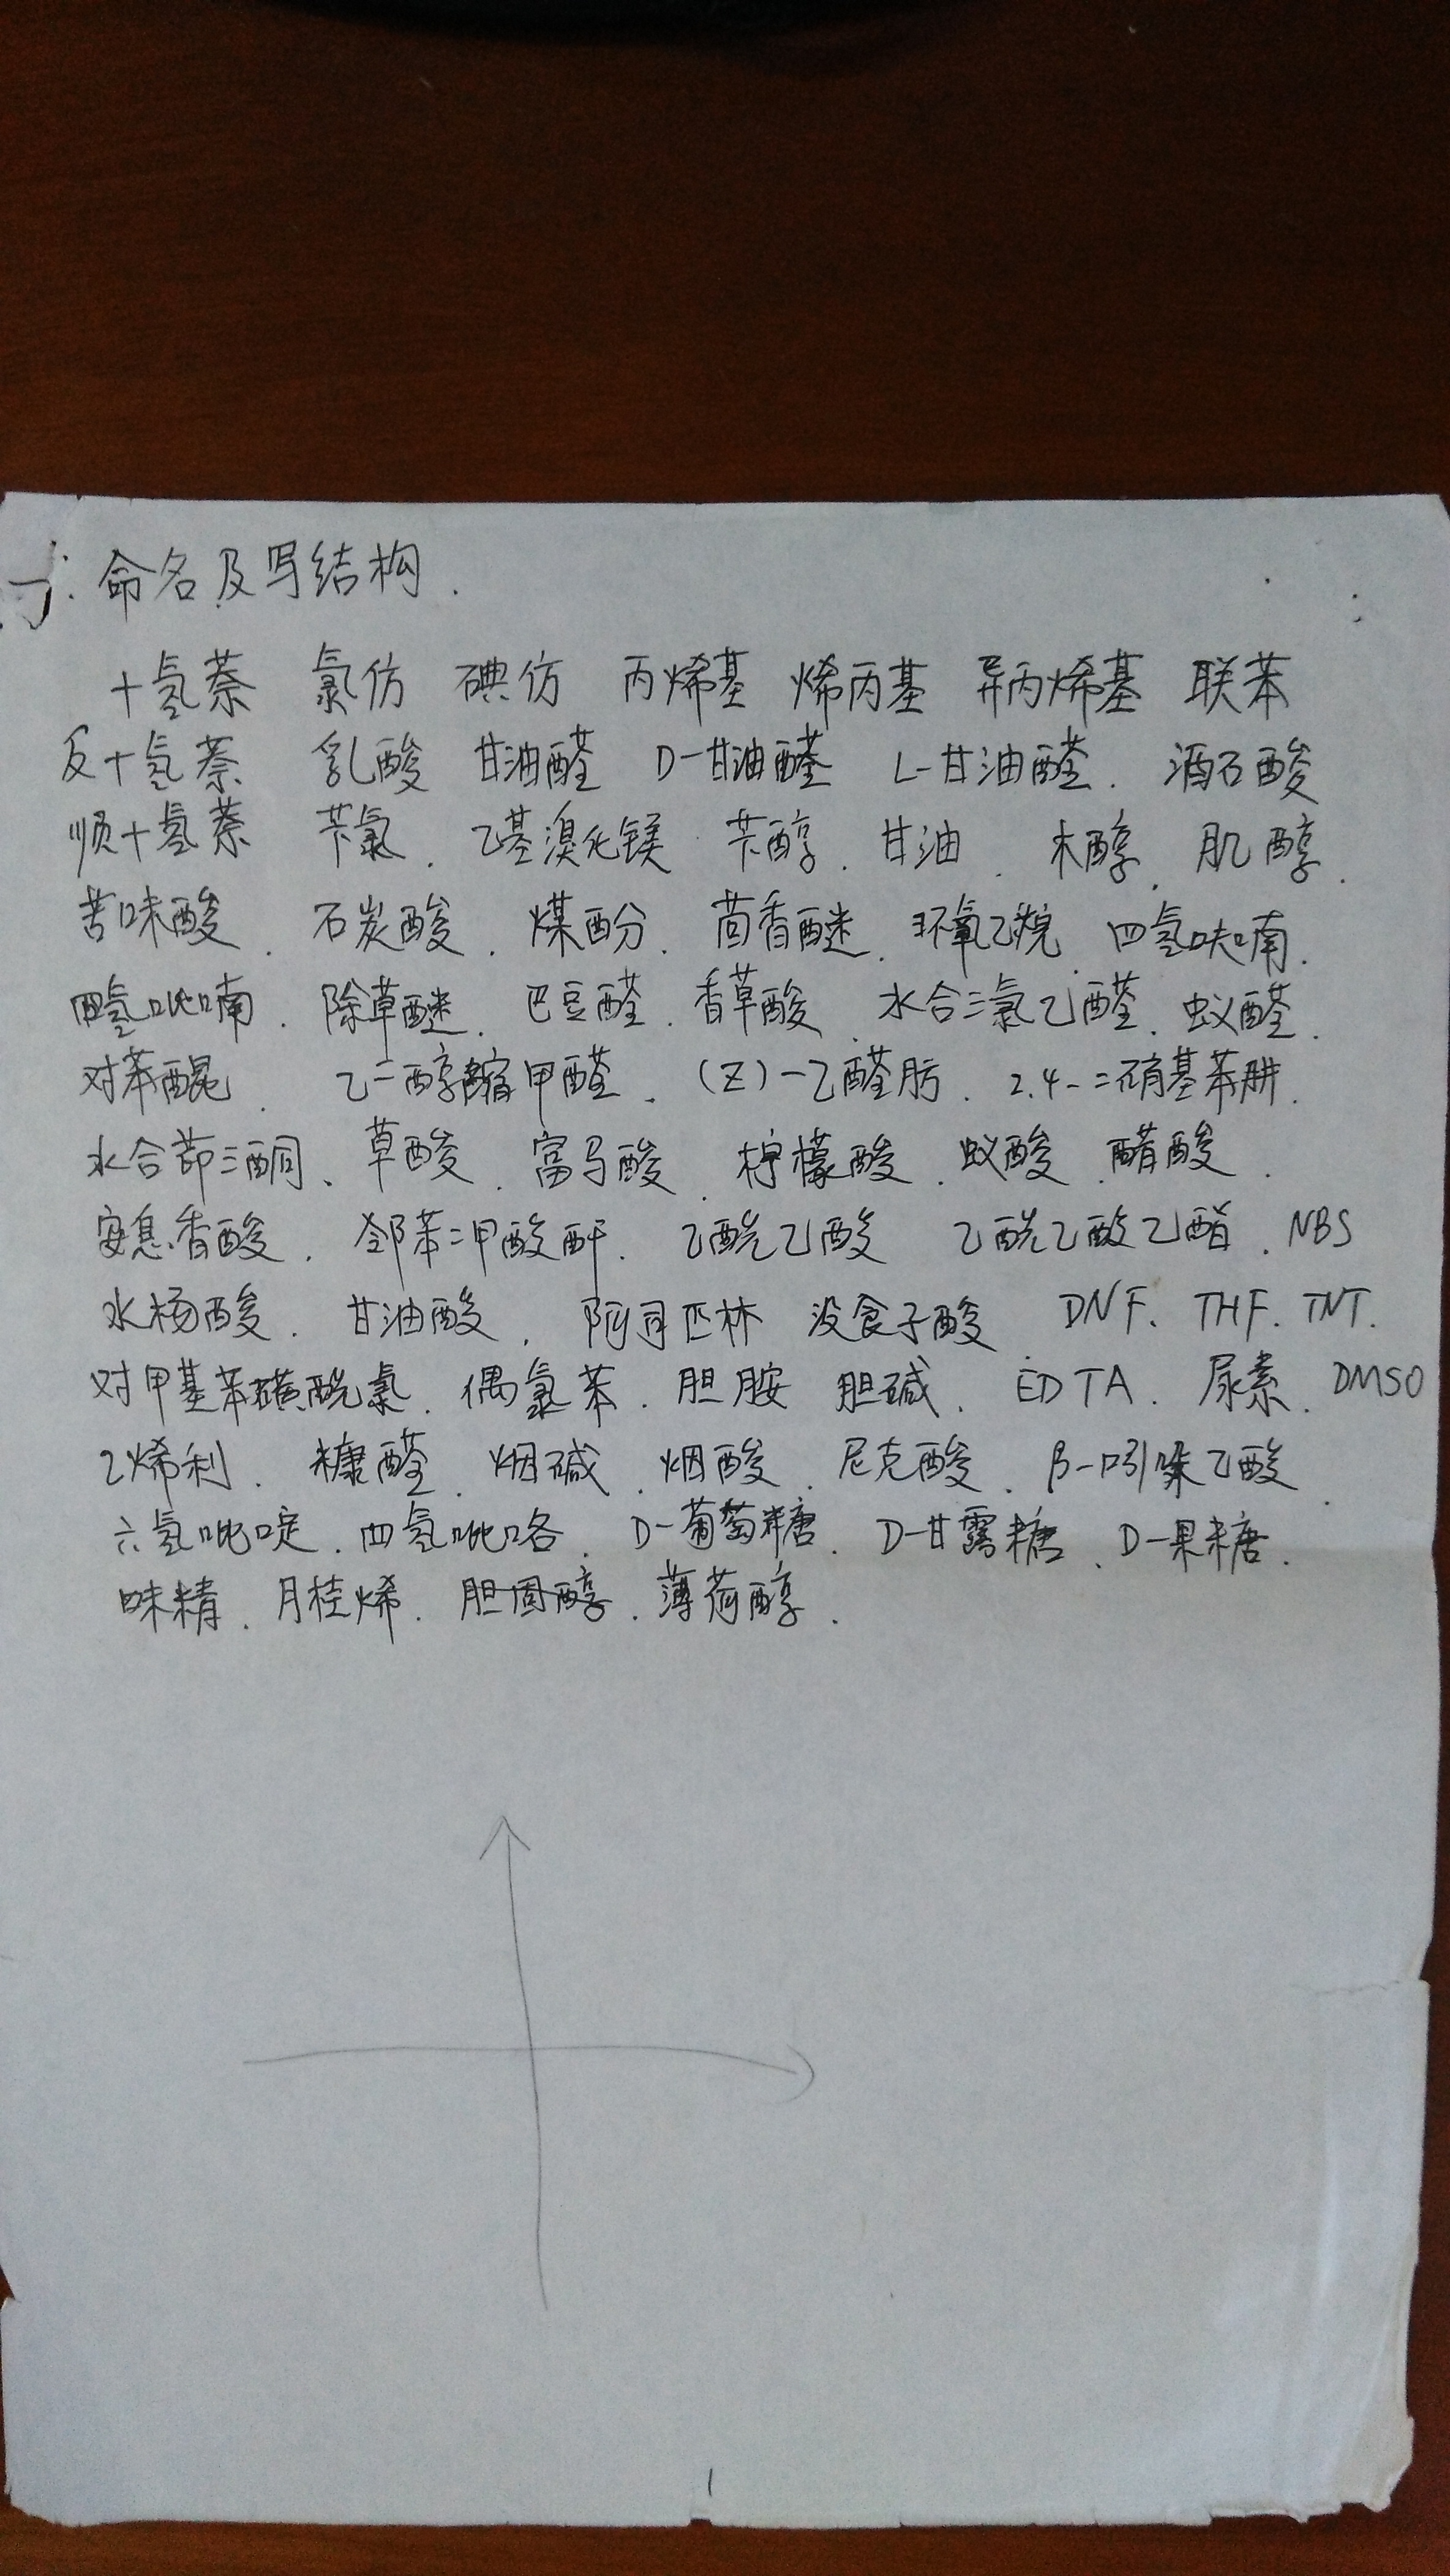 一. 命名及写结构.
十氢萘 氯仿 碘仿 丙烯基 烯丙基 异丙烯基 联苯
反十氢萘 乳酸 甘油醛 D-甘油醛 L-甘油醛. 酒石酸
顺十氢萘 苄氯. 乙基溴化镁 苄醇. 甘油. 木醇. 肌醇.
苦味酸. 石炭酸. 煤酚. 茴香醚. 环氧乙烷. 四氢呋喃.
四氢吡喃. 除草醚. 巴豆醛. 香草酸. 水合三氯乙醛. 蚁醛.
对苯醌. 乙二醇缩甲醛. (Z)-乙醛肟. 2.4-二硝基苯肼.
水合茚三酮、草酸. 富马酸. 柠檬酸. 蚁酸. 醋酸.
安息香酸. 邻苯二甲酸酐. 乙酰乙酸 乙酰乙酸乙酯. NBS
水杨酸. 甘油酸. 阿司匹林 没食子酸. DNF. THF. TNT.
对甲基苯磺酰氯. 偶氮苯. 胆胺 胆碱. EDTA. 尿素. DMSO
乙烯利. 糠醛. 烟碱. 烟酸. 尼克酸. β-吲哚乙酸.
六氢吡啶. 四氢吡咯. D-葡萄糖. D-甘露糖. D-果糖.
味精. 月桂烯. 胆固醇. 薄荷醇.
1